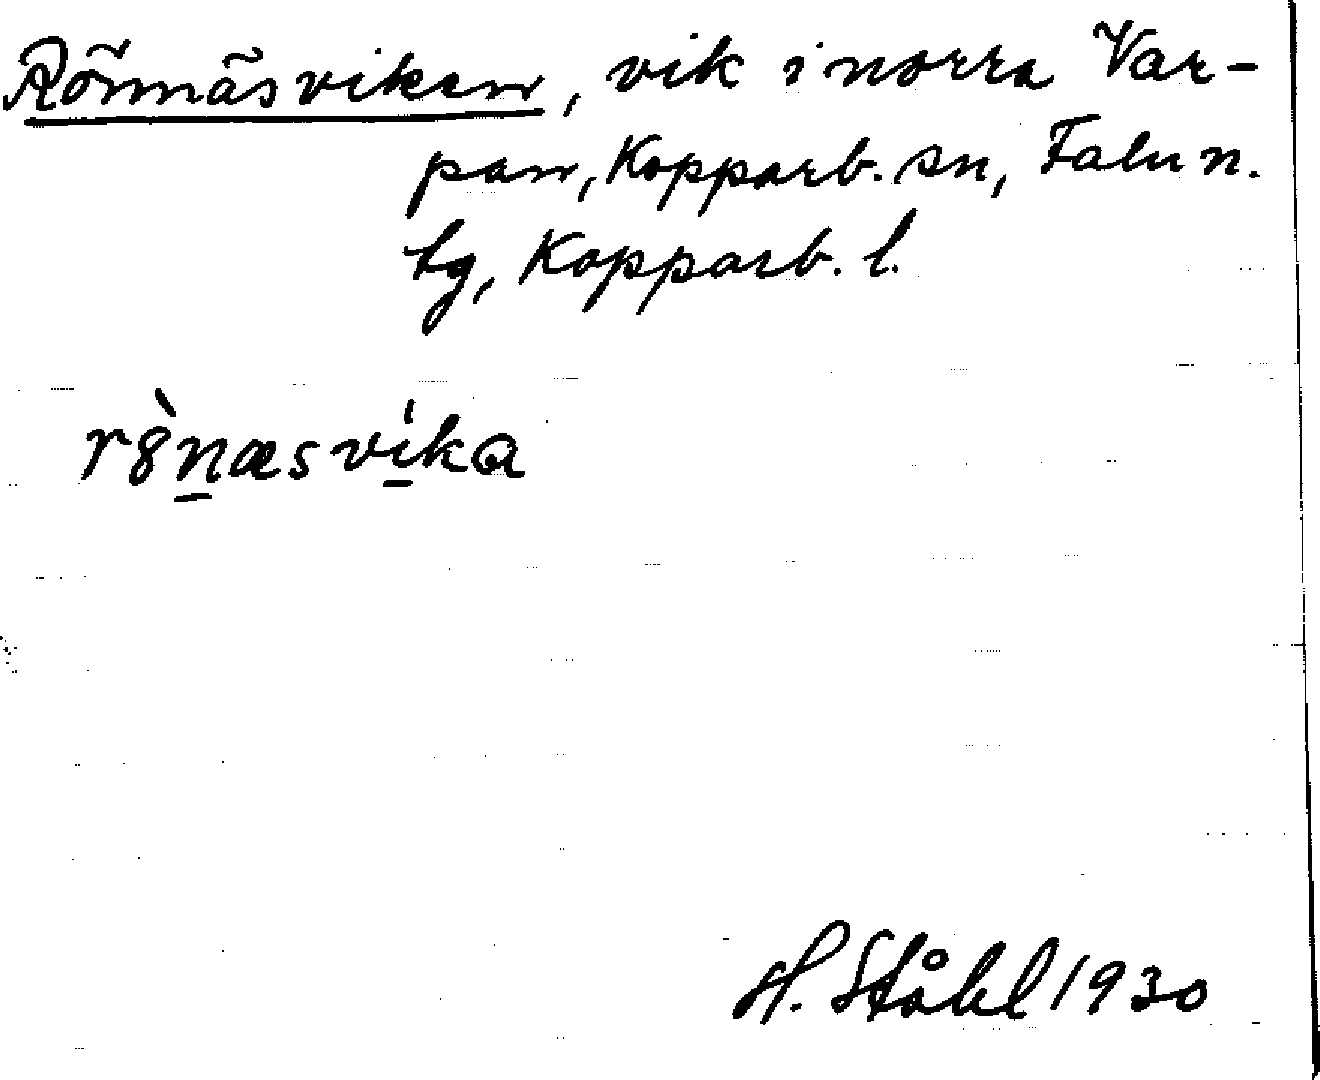 Rönnäsviken, vik i norra Var-
pan, Kopparb. sn, Falu n.
tg, Kopparb. l.
r8̀n̲æsvi̲̍ka
H. Ståhl 1930